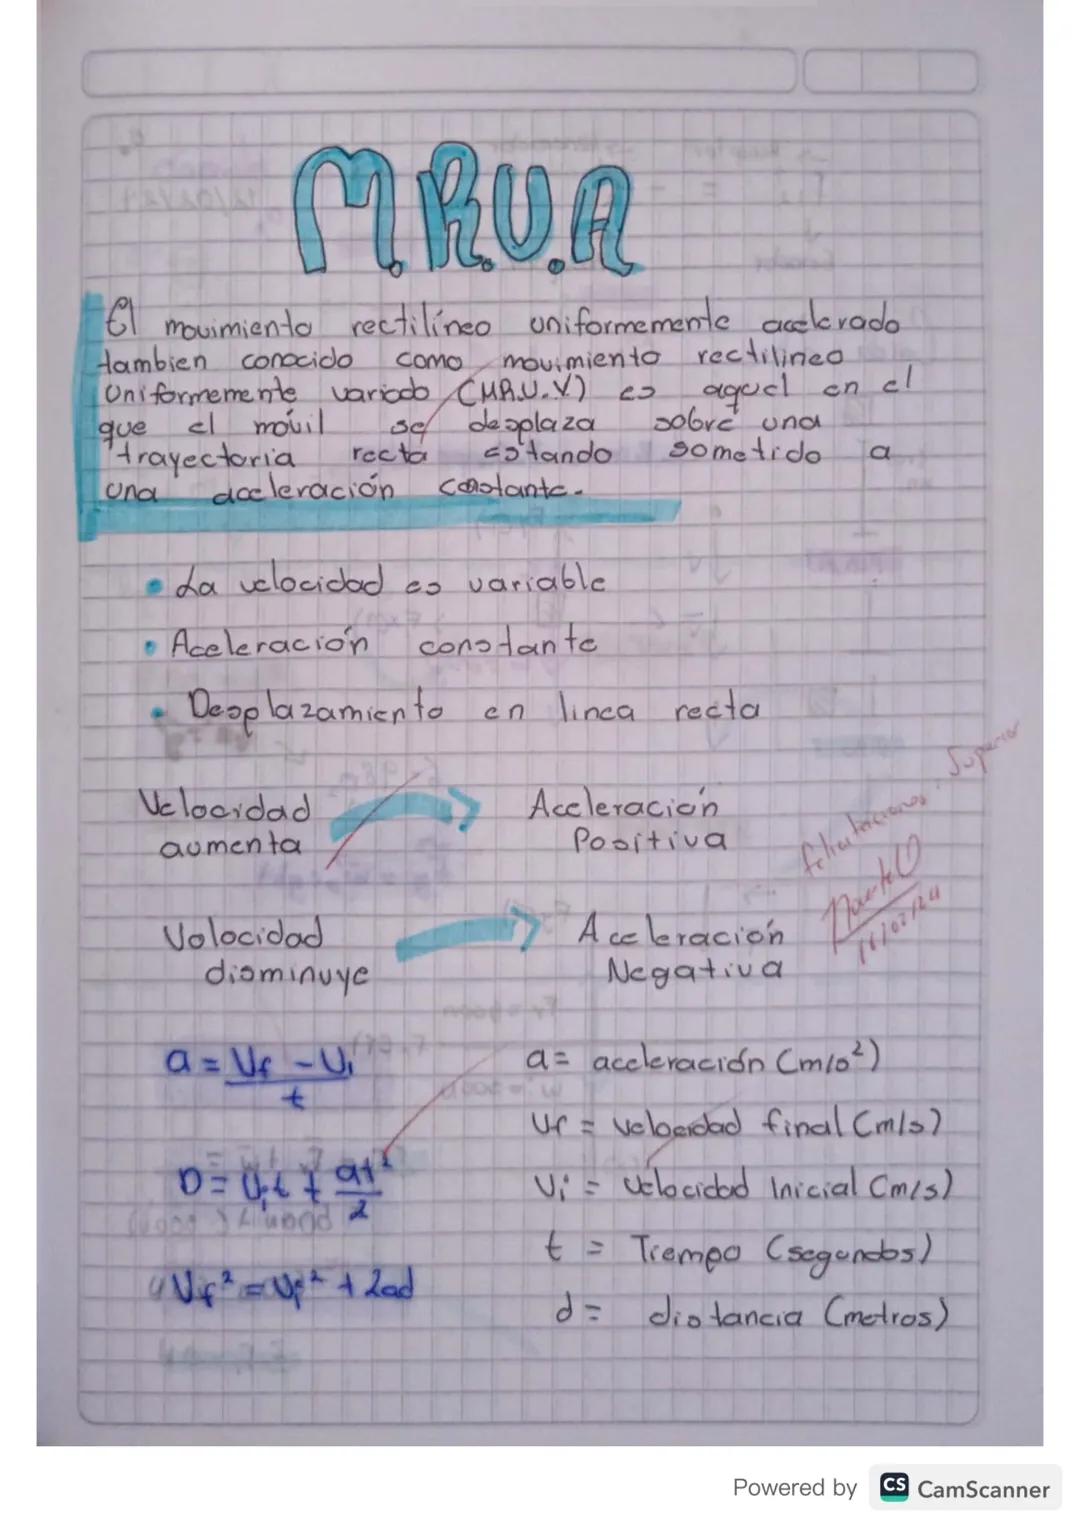 M.R.U.A
El movimiento rectilíneo uniformemente acelerado
tambien conocido como movimiento rectilineo
Uniformemente variado (M.R.U.V.) es aquel en el
que el móvil se desplaza sobre una
trayectoria recta estando sometido a
una aceleración constante.
• La velocidad es variable
• Aceleración constante
• Desplazamiento en linea recta
Velocidad
aumenta
Aceleración
Positiva
felicitaciones. Superior
16/02/24
Velocidad
disminuye
Aceleración
Negativa
a = Vf - Vi
t
a = aceleración (m/s²)
Vf = velocidad final (m/s)
D = Vit + at²
2
Vi = velocidad Inicial (m/s)
t = Tiempo (segundos)
Vf² = Vi² + 2ad
d = distancia (metros)
Powered by CS CamScanner